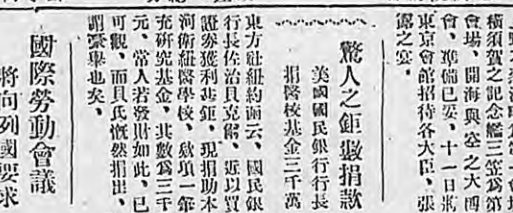 橫須賀之記念艦三笠爲第
會場、開海與空之大博
會、準備已妥、十一日將
東京會館招待各大臣、張
露之宴、
驚人之鉅數捐款
美國國民銀行行長
捐醫校基金三千萬
東方社紐約函云、國民銀
行長佐治貝克爾、近以買
證券獲利甚鉅、現捐助本
河衛紐醫學校、欵項一筆
充研究基金、其數爲三千
元、常人若發財如此、已
可觀、而貝氏慨然捐出、
謂豪舉也矣、
國際勞動會議
將向列國要求